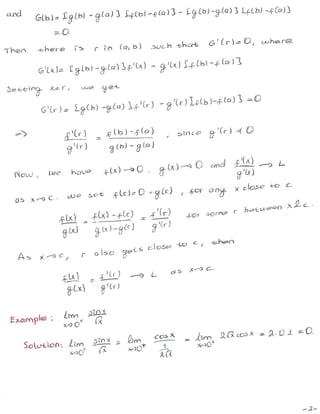 and G(b) = [g(b) - g(a)] [f(b) - f(a)] - [g(b) - g(a)] [f(b) - f(a)]
= 0.
Then there is r in (a,b) such that G'(r) = 0, where
G'(x) = [g(b) - g(a)] f'(x) - g'(x) [f(b) - f(a)]
Setting x=r, we get
G'(r) = [g(b) - g(a)] f'(r) - g'(r) [f(b) - f(a)] = 0
=> f'(r)/g'(r) = f(b) - f(a)/g(b) - g(a) , since g'(r) ≠ 0
Now, we have f(x) → 0, g(x) → 0 and f'(x)/g'(x) → L
as x → c. we set f(c) = 0 = g(c), for any x close to c
f(x)/g(x) = f(x) - f(c)/g(x) - g(c) = f'(r)/g'(r) for some r between x & c.
As x → c, r also gets close to c, then
f(x)/g(x) = f'(r)/g'(r) → L as x → c
Example: lim x→0⁺ sinx/√x
Solution: lim x→0⁺ sinx/√x = lim x→0⁺ cosx/1/2√x = lim x→0⁺ 2√x cosx = 2.0.1 = 0.
-3-